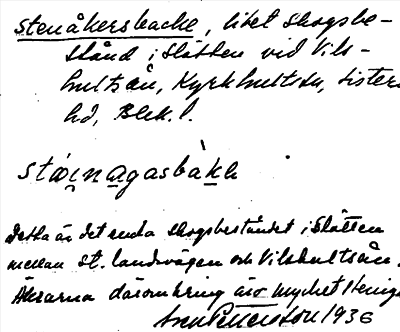 Stenåkersbacke, litet skogsbe-
stånd i slätten vid Vils-
hultsån, Kyrkhultssn, Listers
hd, Blek. l.
stɷi̯nagasbàkk
Detta är det enda skogsbeståndet i slätten
mellan st. landsvägen och Vilshultsån.
Åkrarna däromkring äro mycket steniga
Pettersson 1936